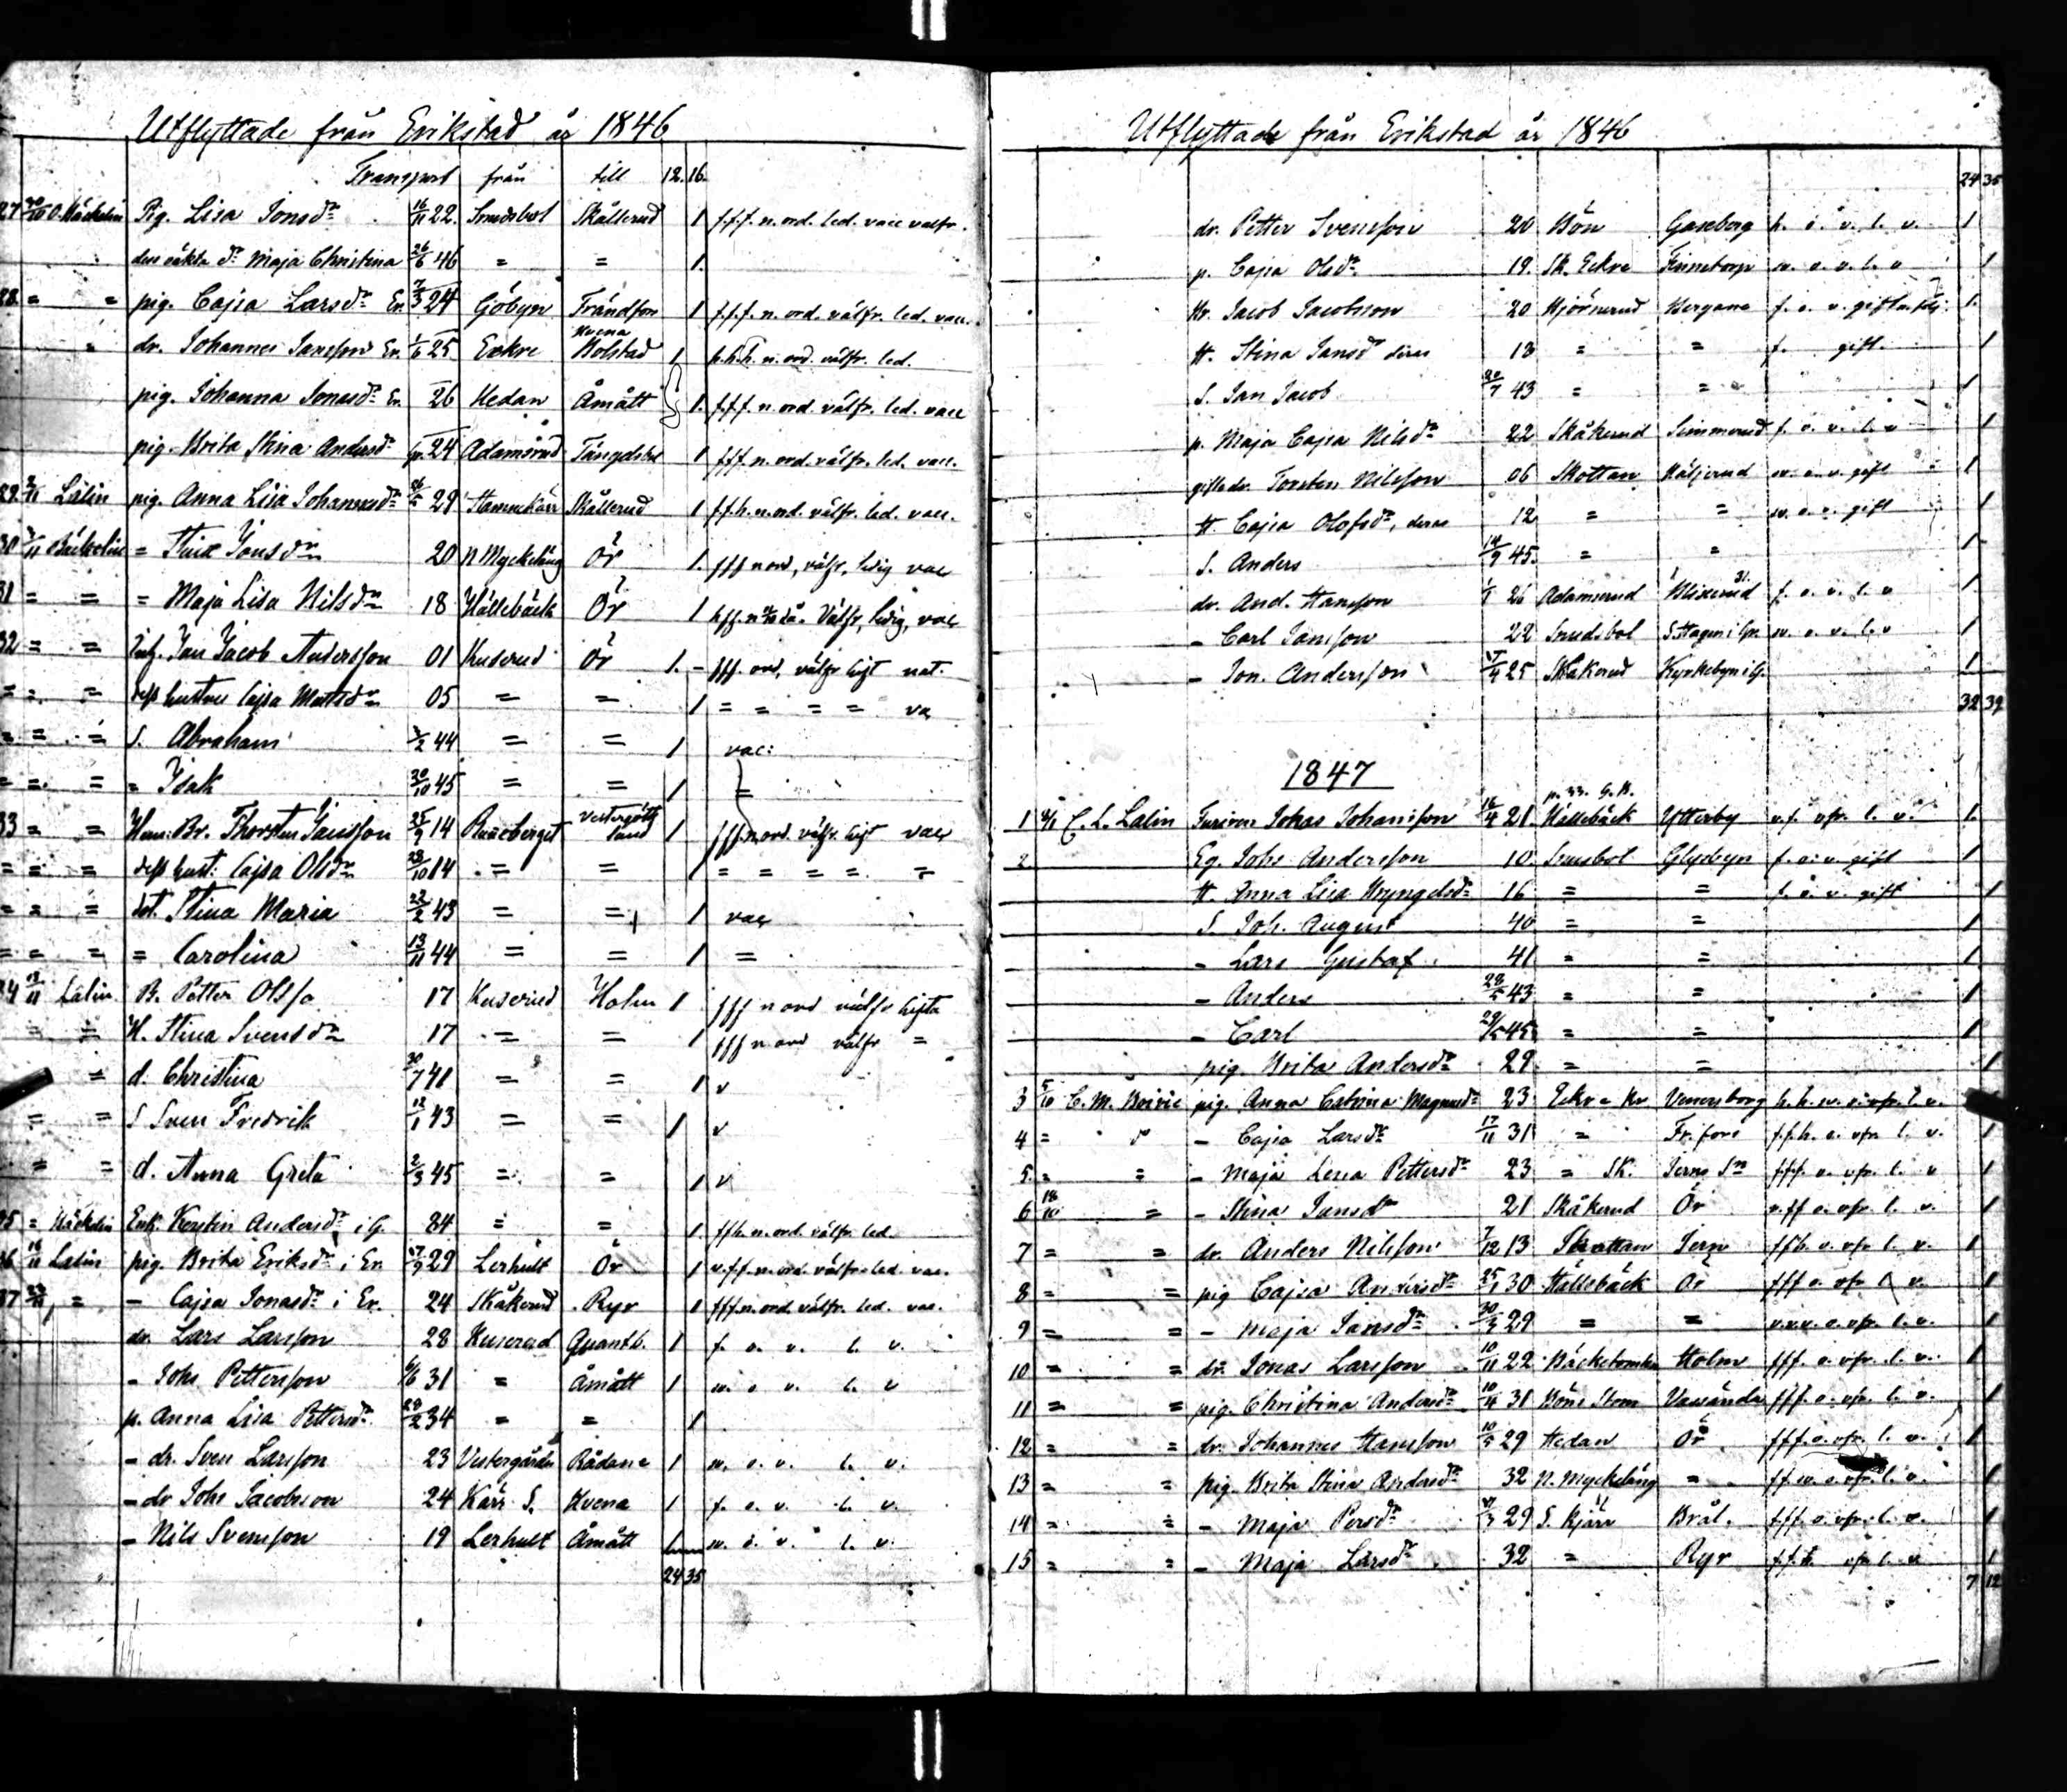 Utflyttade från Erikstad år 1846
Transport från till 12. 16.
27 Pig. Lisa Jonsdr 16/11 22. Smedsbol Skållerud 1 f.f.f. n. ord. led. vacc välfr.
dess oäkta dr Maja Christina 26/6 46 = = 1.
28. = = pig. Cajsa Larsdr Er. 7/3 24 Göbyn Frändfors 1 f.f.f. n. ord. välfr. led. vacc.
dr. Johannes Er. 1/6 25 Eckre Hvena Bolstad 1 h.h.h. n. ord. välfr. led.
pig. Johanna Jonasdr Er. 26 Hedan Åmått 1. f.f.f. n. ord. välfr. led. vacc
pig. Brita Stina Andersdr 24 Adamsrud 1 fff. n. ord. välfr. led. vacc.
29. Lalin pig. Anna Lisa 29 Skållerud 1 f.f.h. n. ord. välfr. led. vacc.
30 = Stina Jonsdr 20 N Myckeläng Ör 1. fff n ord, välfr, ledig vac
31 = = = Maja Lisa Nilsdr 18 Hällebäck Ör 1 Välfr, ledig, vac
32 = = Jan Jacob Andersson 01 Kuserud Ör 1. - fff. ord, välfr nat.
= = = hustru Cajsa Mattsdr 05 = = 1 = = = =
= = = S. Abraham 44 = = 1 vac:
= = = = Isak 20/10 45 = = 1 =
33 = = Hem. Br. Thorsten Jansson 25/9 14 Raneberget Vestergötland 1 fff. n. ord. välfr. vac
= = = hust: Cajsa Olsdr 23/10 14 = = 1 = = = = =
= = = dot. Stina Maria 22/2 43 = = 1 vac
= = = = Carolina 13/11 44 = = 1 =
34 Lalin B. Petter Olss 17 Kuserud Holm 1 fff n ord välfr
= = H. Stina Svensdr 17 = = 1 fff n ord välfr =
= d. Christina 30/7 41 = = 1 v
= = S Sven Fredrik 12/1 43 = = 1 v
= = d. Anna Greta 2/3 45 = = 1 v
35 = Enk. Kerstin Andersdr i G. 84 = = 1. ffh. n. ord. välfr. led
36 16/11 Lalin pig. Brita Eriksdr i Er 29 Lerhult Ör 1 v.f.f. n. ord. välfr. led. vac.
37 = - Cajsa Jonasdr i Er. 24 Skåkerud Ryr 1 fff. n. ord. välfr. led. vac.
dr. Lars Larsson 28 Kuserud Quantb. 1 f. o. v. l. v.
- Johs Pettersson 31 = Åmått 1 w. o v. l. v
p. Anna Lisa Pettersdr 28/2 34 = = 1
- dr. Sven Larsson 23 Vestergården Rådane 1 w. o. v. l. v.
- dr Johs Jacobsson 24 Kärr S. Hvena 1 f. o. v. l. v.
- Nils Svensson 19 Lerhult Åmått 1 w. o. v. l. v.
24 35
Utflyttade från Erikstad år 1846
24 35
dr. Petter Svensson 20 Bön Gaseborg h. o. v. l. v. 1
p. Cajsa Olsdr 19. Sk. Eckre Finnetorp w. o. v. l. v 1
Hr. Jacob Jacobsson 20 Hjörnerud Bergane f. o. v. gift 1.
H. Stina Jansdr deras 18 = = f. gift. 1
S. Jan Jacob 20/7 43 = = 1
p. Maja Cajsa Nilsdr 22 Skåkerud Simmerud f. o. v. l. v 1
gifta dr. Torsten Nilsson 06 Skottan w. o. v. gift 1
H. Cajsa Olofsdr, deras 12 = = w. o. v. gift 1
S. Anders 14/9 45. = = 1
dr. And. Hansson 1/1 26 Adamserud Blixerud 31. f. o. v. l. v 1
- Carl Jansson 22 Smedsbol S. Hagen i Gn w. o. v. l. v 1
- Jon. Andersson 25 Skåkerud Kyrkebyn i G. 1
32 39
1847
p. 33. G. B.
1 C. L. Lalin Johas Johansson 16/4 21. Hällebäck Ytterby v.f. vfr. l. v. 1.
2 Eg. Johs Andersson 10. Smesbol Glysbyn f. o. v. gift 1
H. Anna Lisa Bryngelsdr 16 = = f. o. v. gift 1
S. Joh. August 40 = = 1
- Lars Gustaf 41 = = 1
- Anders 43 = = 1
- Carl 45 = = 1
pig. Brita Andersdr 29 = = 1
3 5/10 C. M. Boivie pig. Anna Catrina Magnusdr 23 Eckre Kr Venersborg
4 = dr - Cajsa Larsdr 17/11 31 = Fr. fors f.f.h. o. vfr. l. v. 1
5. = = - Maja Lena Pettersdr 23 = Sk. Jerns Sn fff. o. vfr. l. v 1
6 18/10 = - Stina Jansdr 21 Skåkerud Ör v.ff o. vfr. l. v. 1
7 = = dr. Anders Nilsson 7/12 13 Skottan Jern ffh. o. vfr l. v. 1
8 = = pig Cajsa Andersdr 25/1 30 Hällebäck Ör fff o. vfr l v. 1
9 = = - Maja Jansdr 29 = = v.v.v. o. vfr. l. v. 1
10 = = dr. Jonas Larsson 10/11 22 Holm fff. o. vfr. l. v. 1
11 = = pig. Christina Andersdr 10/4 31 Böns Stom Vassända fff. o. vfr. l. v. 1
12 = = dr. Johannes Hansson 29 Hedan Ör fff. o. vfr. l. v. 1
13 = = pig. Brita Stina Andersdr 32 N. Myckeläng = ff. w. o. vfr. l. v. 1
14 = = - Maja Persdr 29 S. Kjärr Brål. fff. o. vfr. l. v. 1
15 = = - Maja Larsdr 32 = Ryr f.f.h. vfr. l. v 1
7 12